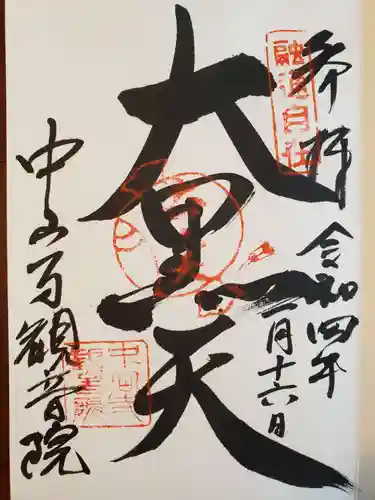 奉拝
令和四年
一月十六日
融通自在
大黒天
中山寺観音院